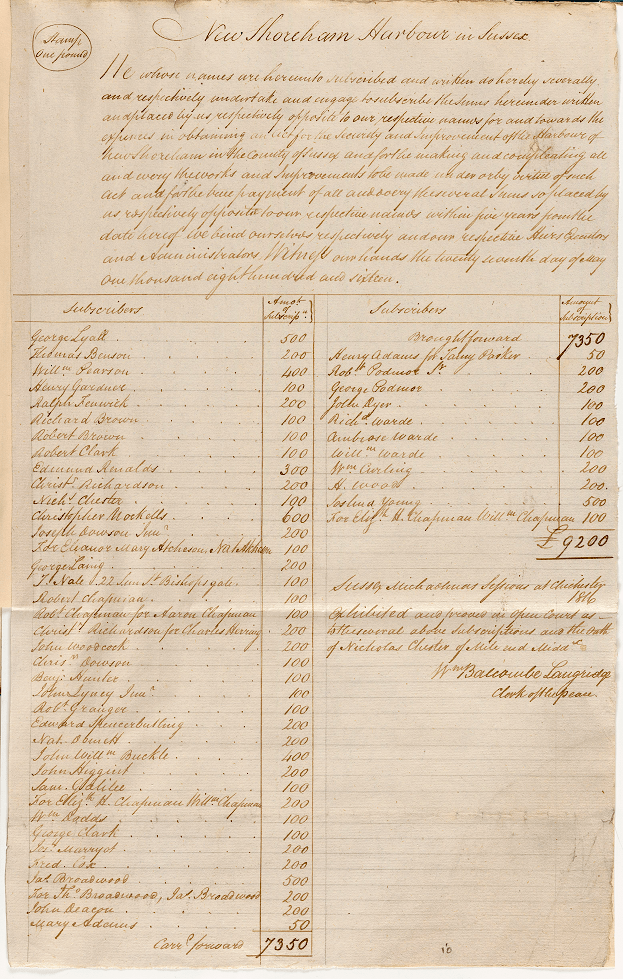 Stamp
One pound
New Shoreham Harbour in Sussex
We whose names are hereunto subscribed and written do hereby severally
and respectively undertake and engage to subscribe the Sums hereunder written
and placed by us respectively opposite to our respective names for and towards the
expences in obtaining an Act for the Security and Improvement of the Harbour of
New Shoreham in the County of Sussex and for the making and compleating all
and every the works and Improvements to be made under or by virtue of such
Act and for the true payment of all and every the several Sums so placed by
us respectively opposite to our respective names within five years from the
date hereof we bind ourselves respectively and our respective Heirs Executors
and Administrators Witness our hands the twenty seventh day of May
one thousand eight hundred and sixteen.
Subscribers Amot. of Subscripn.
George Lyall 500
Thomas Benson 200
Willm Pearson 400
Henry Gardner 100
Ralph Fenwick 200
Richard Brown 100
Robert Brown 100
Robert Clark 100
Edmund Ronalds 300
Christr. Richardson 200
Nichs. Chester 100
Christopher Mockells 600
Joseph Dowson Junr. 200
For Eleanor Mary Atcheson, Nat. Atcheson 100
George Laing 200
T. Nate. 22 Sun St. Bishopsgate 100
Robert Chapman 100
Robt. Chapman for Aaron Chapman 100
Christr. Richardson for Charles Herring 200
John Woodcock 200
Chrisr. Dowson 100
Benj. Hunter 100
John Lyney Junr. 100
Robt. Granger 100
Edward Spencer 200
Nat. 200
John Willm Buckle 400
John Higgins 200
Sam. 100
For Elizth. H. Chapman Willm Chapman 200
Wm Dodds 100
George Clark 100
Jos. Marryat 200
Fred. Cox 200
Jas. Broadwood 500
For Thos. Broadwood, Jas. Broadwood 200
John Deacon 200
Mary Adams 50
Carrd. forward 7350
Subscribers Amount of Subscription
Brought forward 7350
Henry Adams for Parker 50
Robt. Podmor Sr. 200
George Podmor 200
John Dyer 100
Richd. Warde 100
Ambrose Warde 100
Willm Warde 100
Wm Curling 200
H. Wood 200
Young 500
For Elizth. H. Chapman Willm Chapman 100
£9200
Sussex Michaelmas Sessions at Chichester
1816
Exhibited and proved in open Court as
to the several above Subscriptions and the oath
of Nicholas Chester of Mile end Middx.
Wm. Balcombe Langridge
Clerk of the peace
10